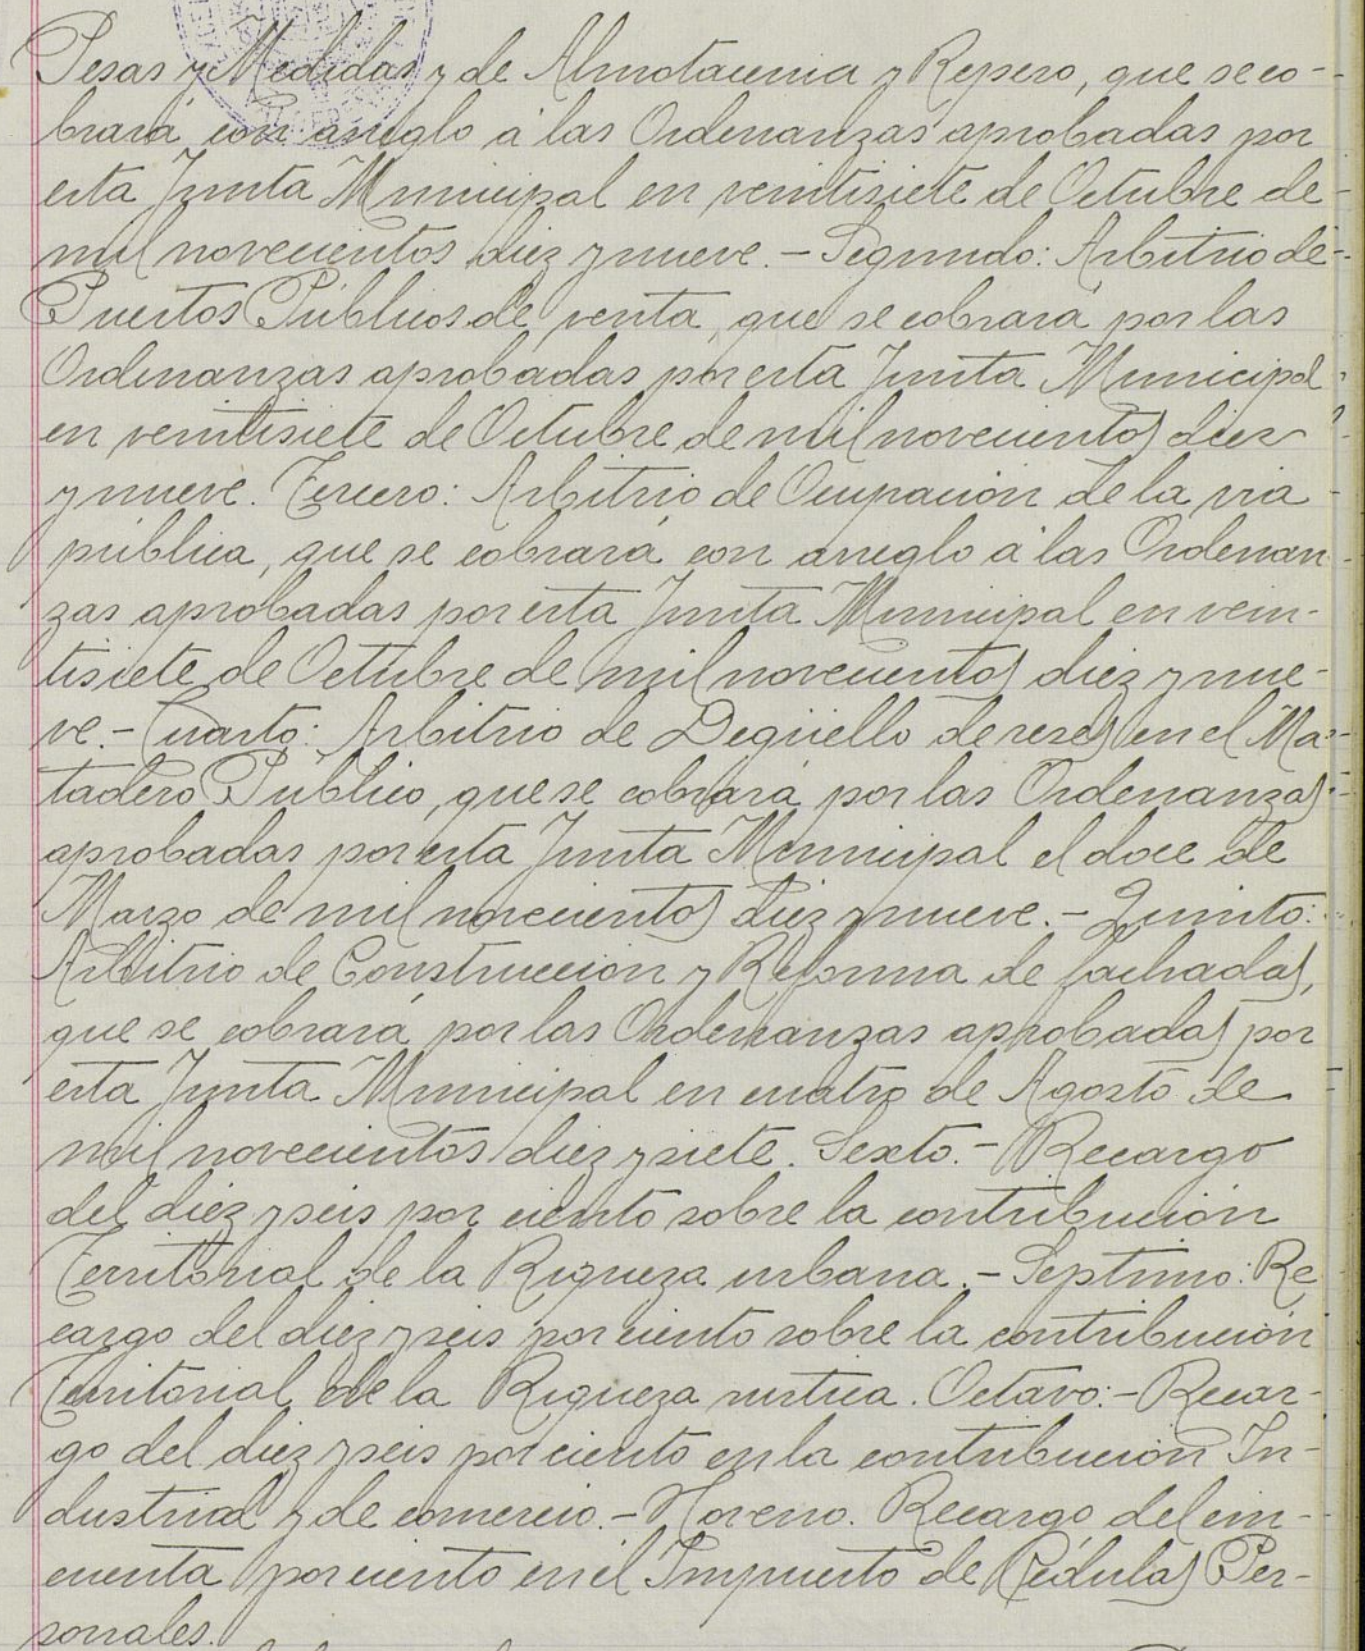 Pesas y Medidas y de Almotacenia y Repeso, que se co-
brará con arreglo á las Ordenanzas aprobadas por
esta Junta Municipal en veintisiete de Octubre de
mil novecientos diez y nueve. - Segundo: Arbitrio de
Puestos Públicos de venta, que se cobrará por las
Ordenanzas aprobadas por esta Junta Municipal
en veintisiete de Octubre de mil novecientos diez
y nueve. Tercero: Arbitrio de Ocupación de la via
pública, que se cobrará con arreglo á las Ordenan
zas aprobadas por esta Junta Municipal en vein-
tisiete de Octubre de mil novecientos diez y nue-
ve. - Cuarto: Arbitrio de Degüello de reses en el Ma-
tadero Público, que se cobrará por las Ordenanzas
aprobadas por esta Junta Municipal el doce de
Marzo de mil novecientos diez y nueve. - Quinto:
Arbitrio de Construccion y Reforma de fachadas,
que se cobrará por las Ordenanzas aprobadas por
esta Junta Municipal en cuatro de Agosto de
mil novecientos diez y siete. Sexto. - Recargo
del diez y seis por ciento sobre la contribución
Territorial de la Riqueza urbana. - Septimo: Re
cargo del diez y seis por ciento sobre la contribución
Territorial de la Riqueza rustica. Octavo: - Recar-
go del diez y seis por ciento en la contribución In-
dustrial y de comercio. - Noveno. Recargo del cin-
cuenta por ciento en el Impuesto de Cédulas Per-
sonales.